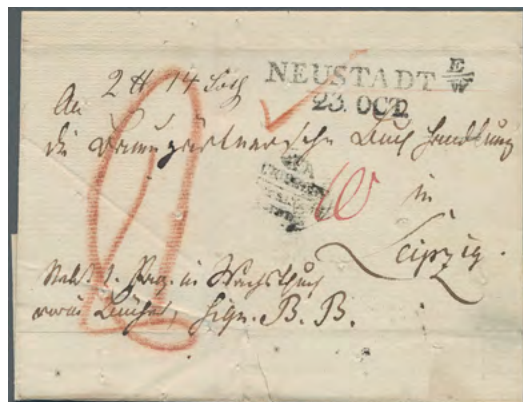 NEUSTADT E/W
23. OCT.
2 ℔ 14 Loth
An
die Baumgärtnersche Buchhandlung
in
Leipzig.
Nebst 1. in Wachstuch
worin Bücher, sign. B. B.